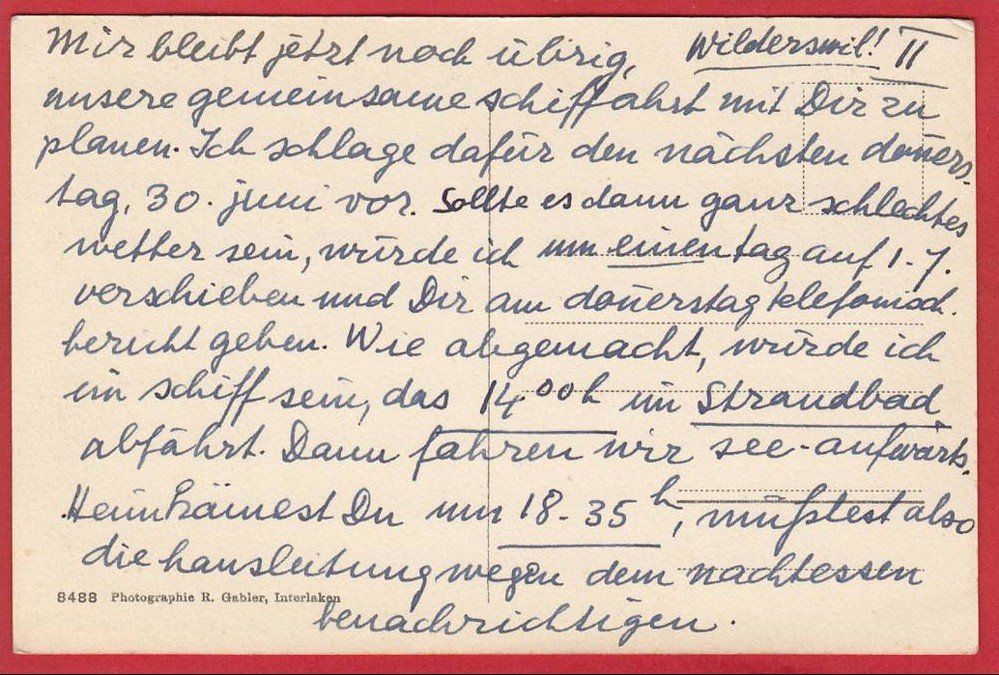 Wilderswil! II
Mir bleibt jetzt noch übrig,
unsere gemeinsame schiffahrt mit Dir zu
planen. Ich schlage dafür den nächsten doners-
tag, 30. juni vor. Sollte es dann ganz schlechtes
wetter sein, würde ich um einen tag auf 1.7.
verschieben und Dir am donerstag telefonisch.
bericht geben. Wie abgemacht, würde ich
im schiff sein, das 14.00 h im Strandbad
abfährt. Dann fahren wir see-aufwärts.
Heimkämest Du um 18-35 h, müßtest also
die hausleitung wegen dem nachtessen
benachrichtigen.
8488 Photographie R. Gabler, Interlaken